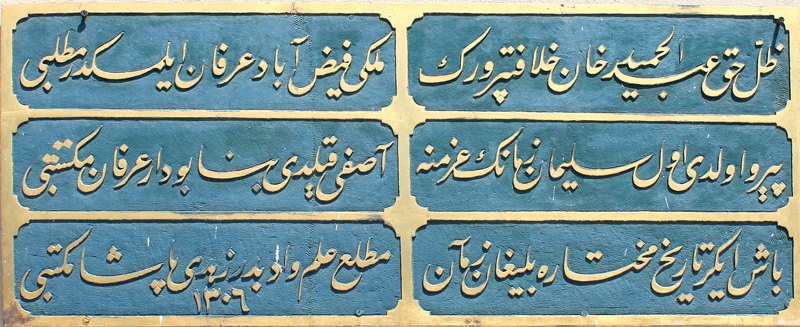 ظلّ حق عبد الحمید خان خلافتپرورك
ملکی فیض آباد عرفان ایلمکدر مطلبی
پیرو اولدی اول سلیمان زمانك عزمنه
آصفی قیلدی بنا بو دار عرفان مکتبی
باش ایکر تاریخ مختاره بلیغان زمان
مطلع علم و ادبدر زهدی پاشا مکتبی
١٣٠٦